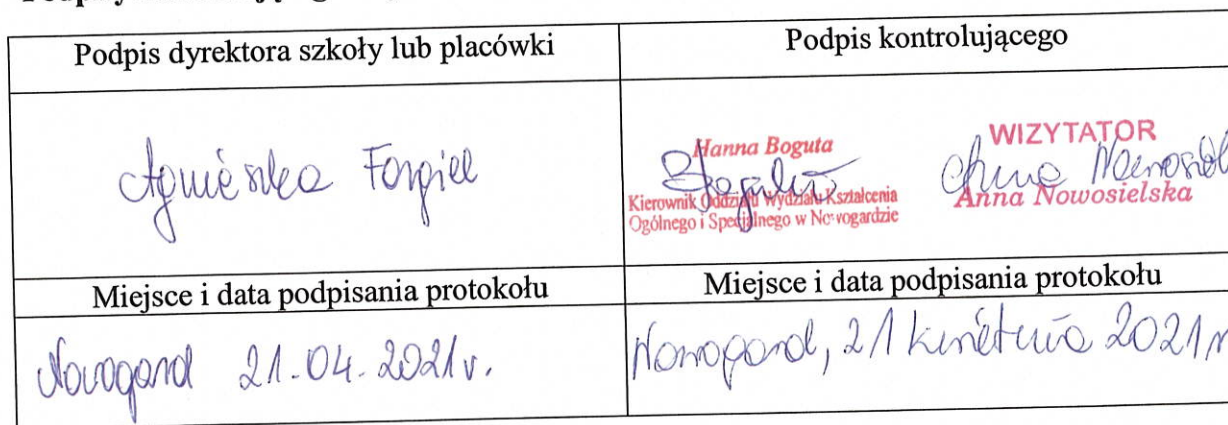 Podpis dyrektora szkoły lub placówki
Podpis kontrolującego
Agnieszka
Hanna Boguta
Kierownik Oddziału Wydziału Kształcenia
Ogólnego i Specjalnego w Nowogardzie
WIZYTATOR
Anna Nowosielska
Miejsce i data podpisania protokołu
Miejsce i data podpisania protokołu
Nowogard 21.04.2021 r.
Nowogard, 21 kwietnia 2021 r